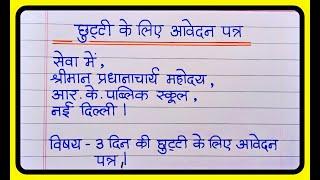 छुट्टी के लिए आवेदन पत्र
सेवा में,
श्रीमान प्रधानाचार्य महोदय,
आर. के. पाब्लिक स्कूल,
नई दिल्ली।
विषय - 3 दिन की छुट्टी के लिए आवेदन
पत्र,।